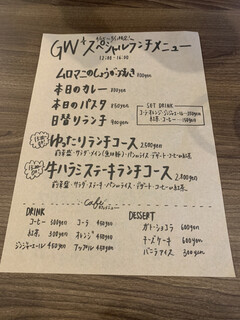 GW+スペシャルランチメニュー
11:00-16:30
ムロマニのしょうが
850yen
本日のカレー 850yen
本日のパスタ 850yen
日替りランチ 900yen
SOFT DRINK
コーラ・オレンジ・ジンジャーエール
紅茶・コーヒー
ゆったりランチコース 2,500yen
前菜・サラダ・メイン・パンorライス・デザート・コーヒーor紅茶
牛ハラミステーキランチコース 2,800yen
前菜・サラダ・ステーキ・パンorライス・デザート・コーヒーor紅茶
cafe
DRINK
コーヒー 500yen コーラ 450yen
紅茶 500yen オレンジ 450yen
ジンジャーエール 450yen アップル 450yen
DESSERT
ガトーショコラ 600yen
チーズケーキ 600yen
バニラアイス 300yen